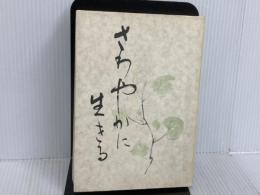 さわやかに
生きる